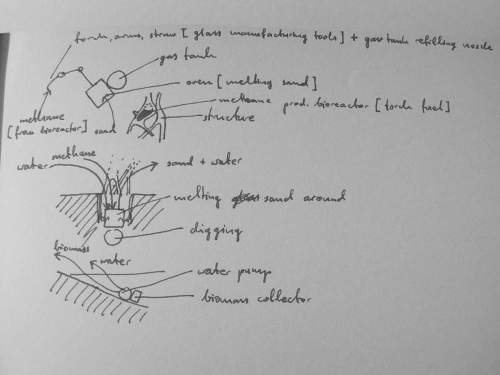 torch, arms, straw [glass manufacturing tools] + gas tank refilling nozzle
gas tank
oven [melting sand]
methane prod. bioreactor [torch fuel]
structure
methane
[from bioreactor]
sand
water
methane
sand + water
melting sand around
digging
biomass
water
water pump
biomass collector